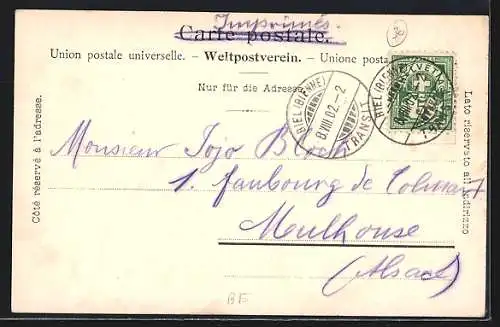 Imprimés.
Carte postale.
Union postale universelle. – Weltpostverein. – Unione posta
Nur für die Adresse.
BIEL (BIENNE)
8.VIII 02.–2
TRANSIT
BIEL (BIEN
TRAN
HELVETIA
Côté réservé à l'adresse.
Lato riservato all'indirizzo
Monsieur Jojo Bloch
1. faubourg de Colmar
Mulhouse
(Alsace)
BF